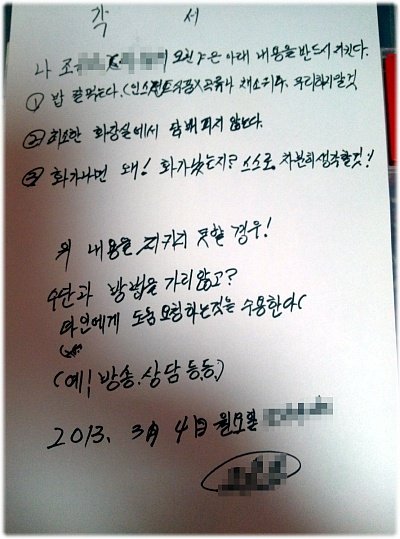 각 서
나 조 은 아래 내용을 반드시 지킨다.
① 밥 잘먹는다. (인스턴트식품X 채소위주, 무리하지말것
② 화장실에서 담배 피지 않는다.
③ 화가나면 왜! 화가났는지? 스스로, 차분히 생각할것!
위 내용을 지키지 못할 경우!
수단과 방법을 가리않고?
타인에게 도움 요청하는것을 수용한다(
(예| 방송.상담 등등.)
2013. 3月 4日 월요일